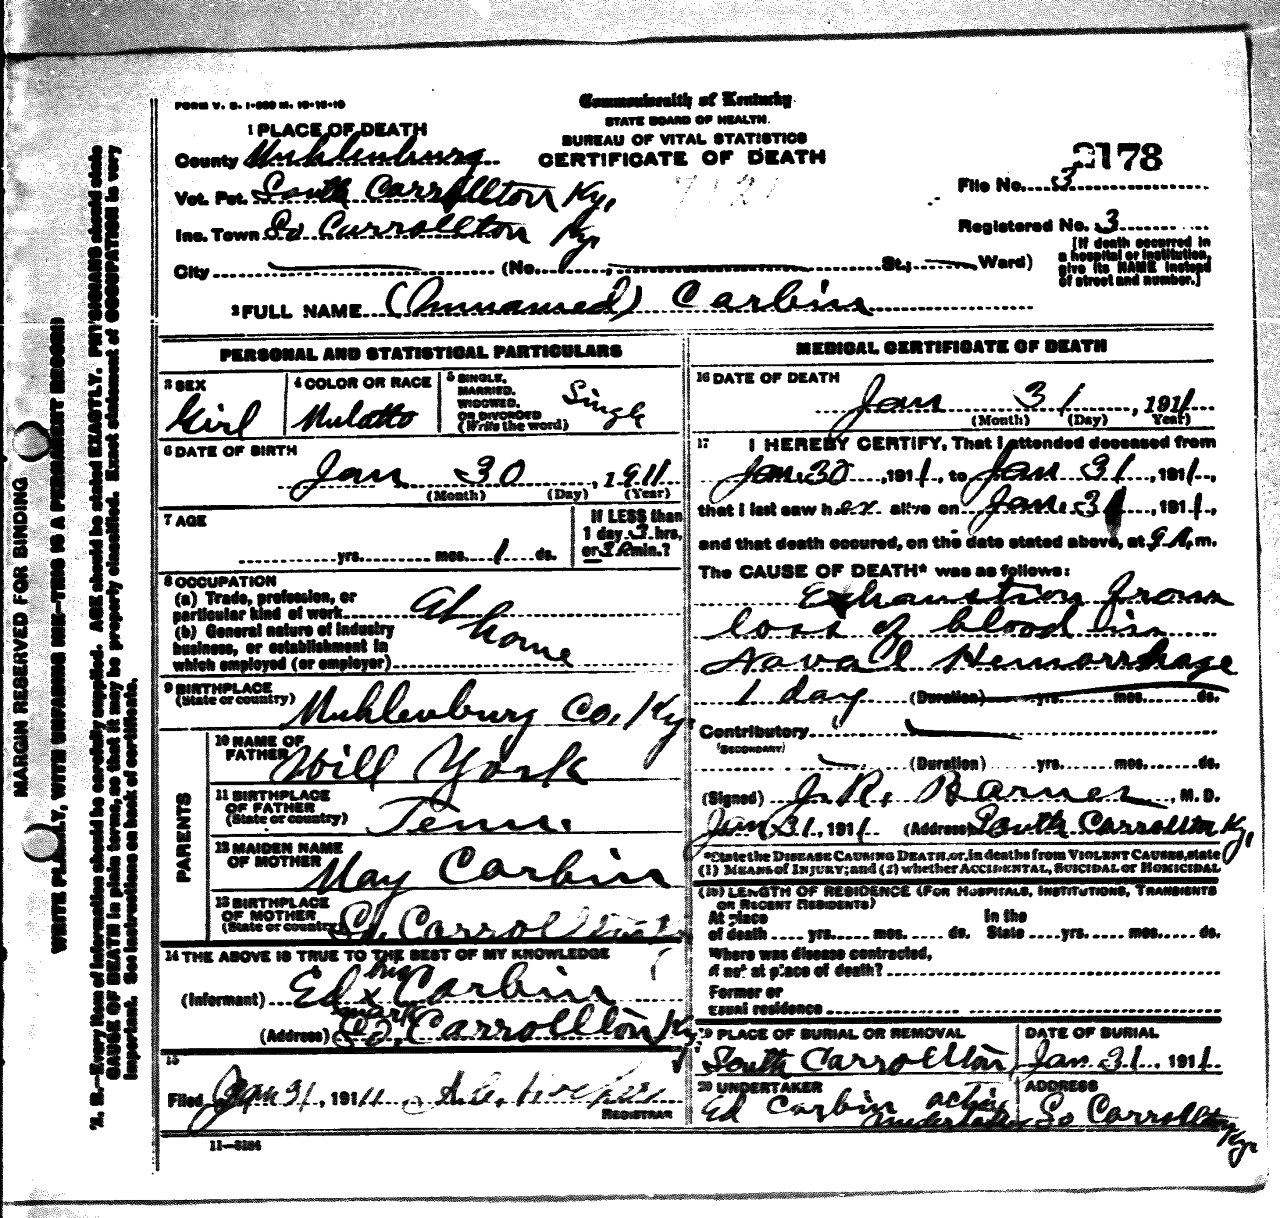 FORM V. S. 1-500 M. 10-10-10
Commonwealth of Kentucky
STATE BOARD OF HEALTH.
BUREAU OF VITAL STATISTICS
CERTIFICATE OF DEATH
1 PLACE OF DEATH
County Muhlenburg
Vot. Pct. South Carrollton Ky,
Inc. Town So Carrollton Ky
City (No. , St.; Ward)
2178
7121
File No. 3
Registered No. 3
[If death occurred in
a hospital or institution,
give its NAME instead
of street and number.]
2 FULL NAME (Unnamed) Carbin
PERSONAL AND STATISTICAL PARTICULARS
3 SEX
Girl
4 COLOR OR RACE
Mulatto
5 SINGLE,
MARRIED,
WIDOWED,
OR DIVORCED
(Write the word)
Single
6 DATE OF BIRTH
Jan 30, 1911
(Month) (Day) (Year)
7 AGE
yrs. mos. 1 ds.
If LESS than
1 day 3 hrs,
or min.?
8 OCCUPATION
(a) Trade, profession, or
particular kind of work
(b) General nature of industry
business, or establishment in
which employed (or employer)
At home
9 BIRTHPLACE
(State or country)
Muhlenburg Co, Ky,
PARENTS
10 NAME OF
FATHER
Will York
11 BIRTHPLACE
OF FATHER
(State or country)
Tenn.
12 MAIDEN NAME
OF MOTHER
May Carbin
13 BIRTHPLACE
OF MOTHER
(State or country)
So, Carrollton
14 THE ABOVE IS TRUE TO THE BEST OF MY KNOWLEDGE
(Informant) Ed his x mark Carbin
(Address) So, Carrollton Ky
15
Filed Jan 31, 1911
REGISTRAR
11-3184
MEDICAL CERTIFICATE OF DEATH
16 DATE OF DEATH
Jan 31, 1911
(Month) (Day) Year)
17 I HEREBY CERTIFY, That I attended deceased from
Jan 30, 1911, to Jan 31, 1911,
that I last saw her alive on Jan 31, 1911,
and that death occured, on the date stated above, at 9 A. m.
The CAUSE OF DEATH* was as follows:
Exhaustion from
loss of blood in
Naval Hemorrhage
1 day (Duration) yrs. mos. ds.
Contributory
(SECONDARY)
(Duration) yrs. mos. ds.
(Signed) J. R. Barnes, M. D.
Jan 31, 1911 (Address) South Carrollton Ky,
*State the DISEASE CAUSING DEATH, or, in deaths from VIOLENT CAUSES, state
(1) MEANS of INJURY; and (2) whether ACCIDENTAL, SUICIDAL or HOMICIDAL
(18) LENGTH OF RESIDENCE (FOR HOSPITALS, INSTITUTIONS, TRANSIENTS
OR RECENT RESIDENTS)
At place of death yrs. mos. ds. In the State yrs. mos. ds.
Where was disease contracted,
if not at place of death?
Former or
usual residence
19 PLACE OF BURIAL OR REMOVAL
South Carrollton
DATE OF BURIAL
Jan 31, 1911
20 UNDERTAKER
Ed Carbin acting undertaker
ADDRESS
So Carrollton Ky.
MARGIN RESERVED FOR BINDING
WRITE PLAINLY, WITH UNFADING INK—THIS IS A PERMANENT RECORD
N. B.—Every item of information should be carefully supplied. AGE should be stated EXACTLY. PHYSICIANS should state
CAUSE OF DEATH in plain terms, so that it may be properly classified. Exact statement of OCCUPATION is very
important. See instructions on back of certificate.